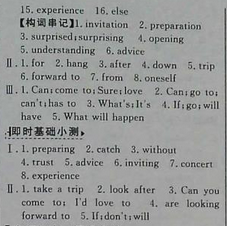 15. experience 16. else
【构词串记】1. invitation 2. preparation
3. surprised; surprising 4. opening
5. understanding 6. advice
Ⅱ. 1. for 2. hang 3. after 4. down 5. trip
6. forward to 7. from 8. oneself
Ⅲ. 1. Can; come to; Sure; love 2. Can; go to;
can't; has to 3. What's; It's 4. If; go; will
have 5. What will happen
即时基础小测
Ⅰ. 1. preparing 2. catch 3. without
4. trust 5. advice 6. inviting 7. concert
8. experience
Ⅱ. 1. take a trip 2. look after 3. Can you
come to; I'd love to 4. are looking
forward to 5. If; don't; will